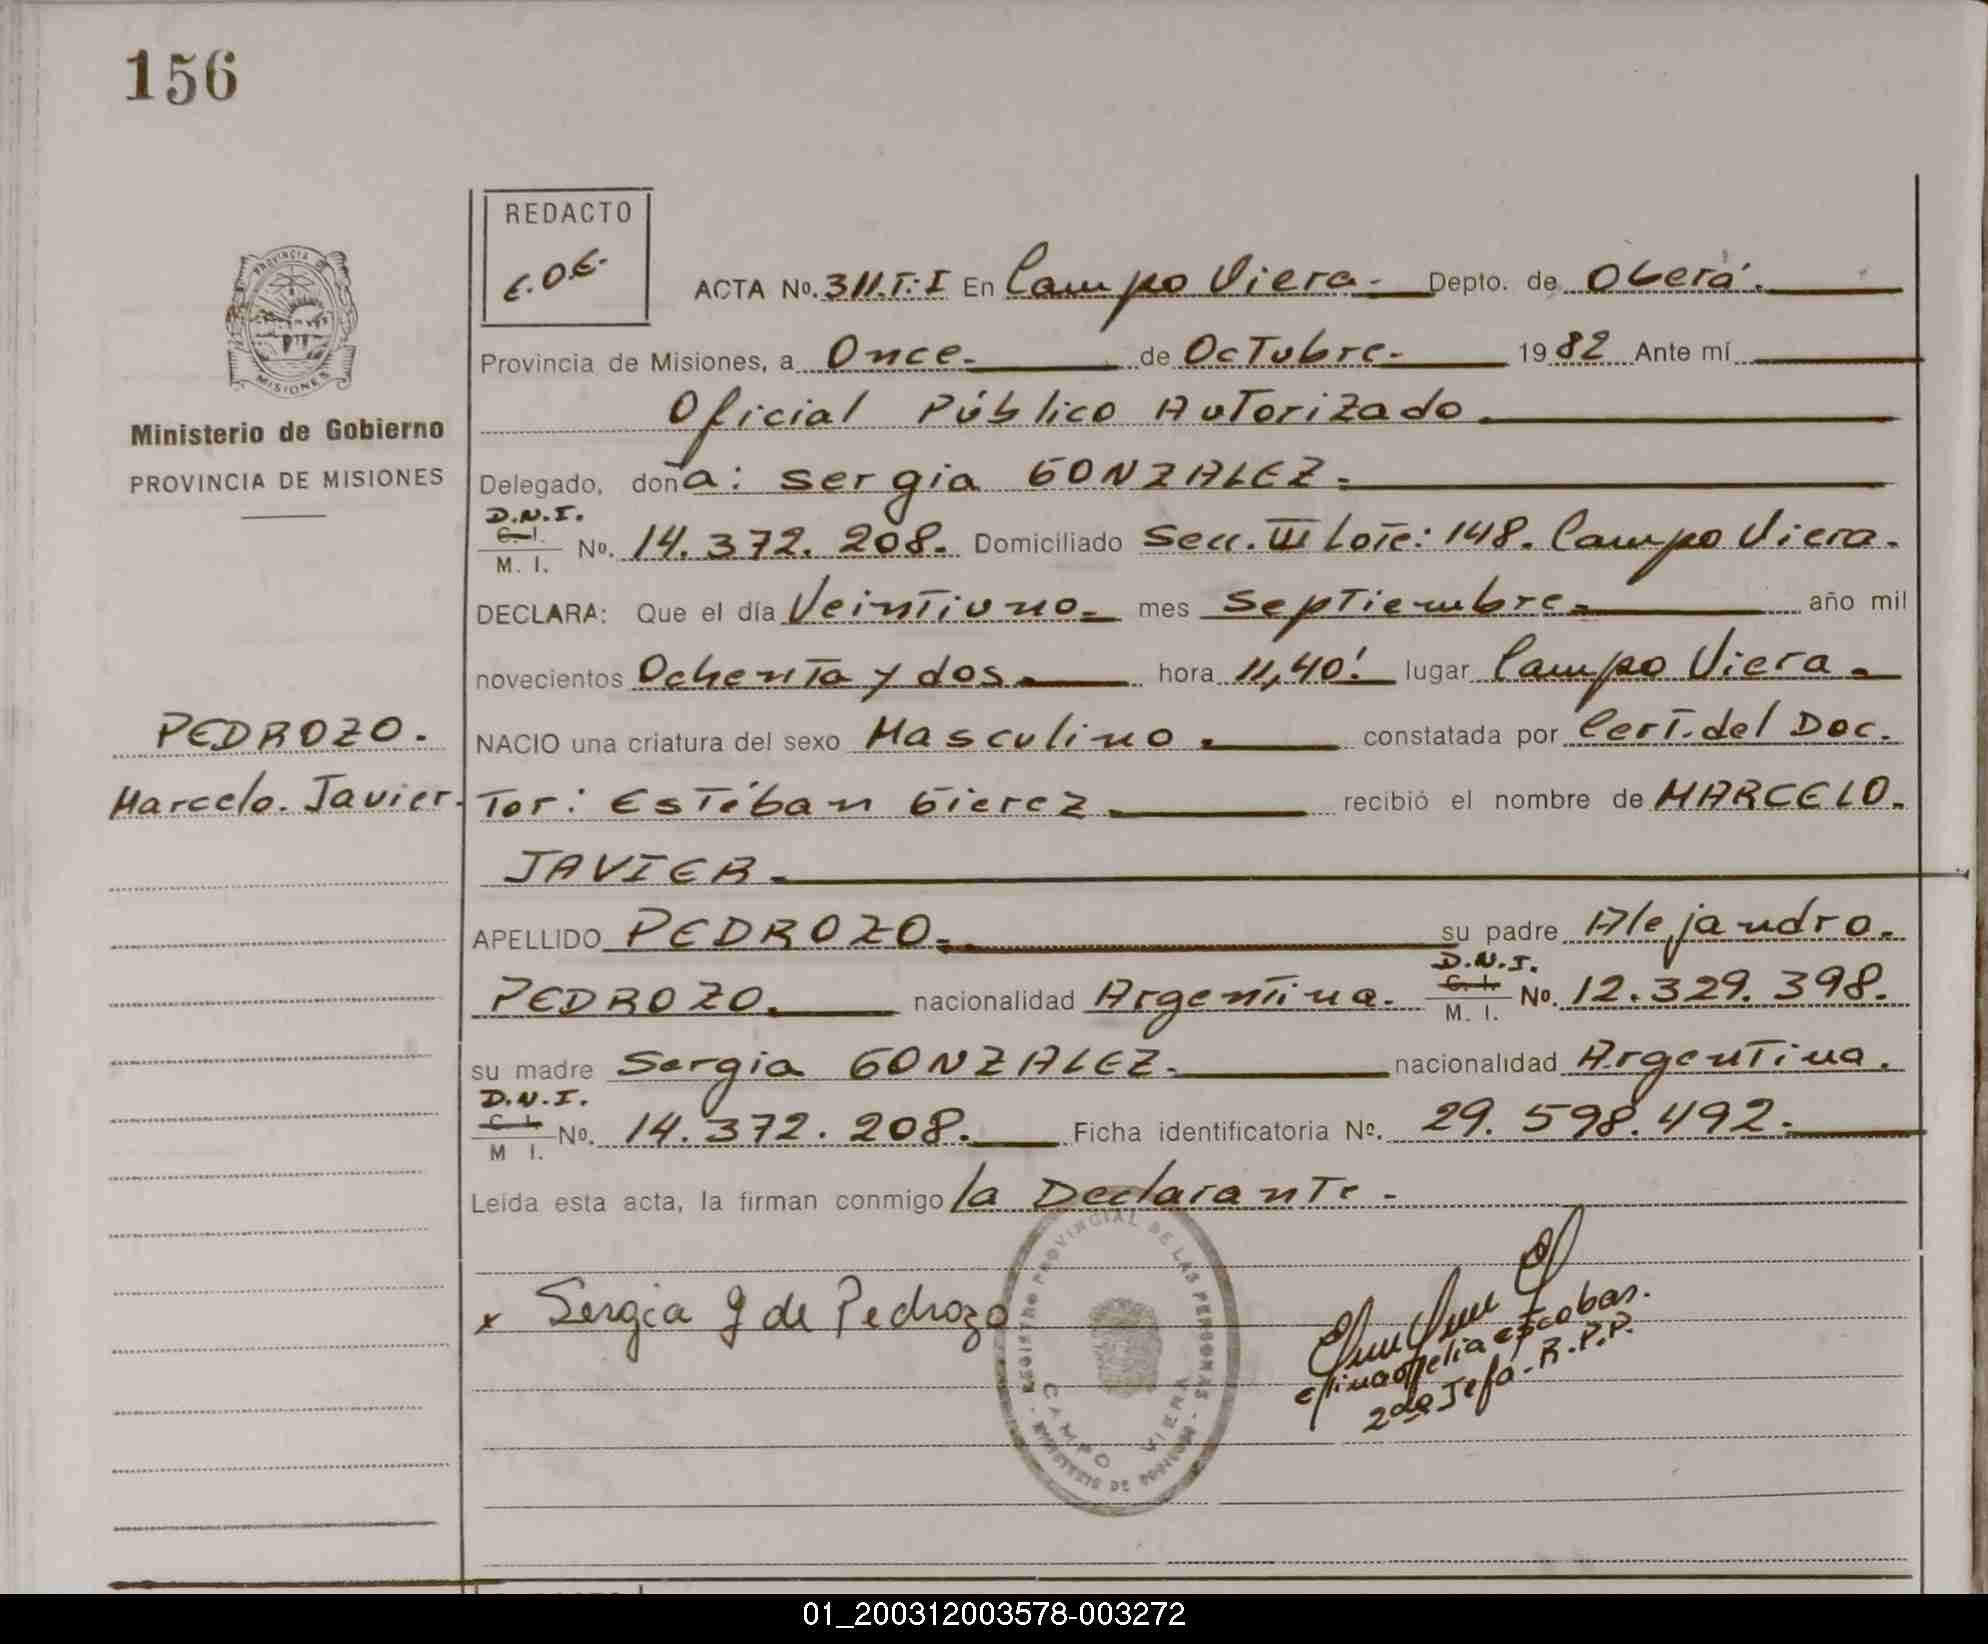 156
REDACTO
E.O.E.
ACTA No. 311.T:I En Campo Viera.- Depto. de Oberá.
Provincia de Misiones, a Once. de Octubre. 1982 Ante mí
PROVINCIA DE
MISIONES
Ministerio de Gobierno
PROVINCIA DE MISIONES
Oficial Público Autorizado.
Delegado, doña: Sergia GONZALEZ.
D.N.I.
C. I.
M. I.
No. 14.372.208. Domiciliado Secc. III Lote: 148. Campo Viera.
DECLARA: Que el día Veintiuno. mes Septiembre. año mil
novecientos Ochenta y dos. hora 11,40! lugar Campo Viera.
PEDROZO.
Marcelo. Javier.
NACIO una criatura del sexo Masculino. constatada por Cert. del Doc.
Tor: Estéban Gierez recibió el nombre de MARCELO.
JAVIER.
APELLIDO PEDROZO. su padre Alejandro.
D.N.I.
C. I.
M. I.
PEDROZO. nacionalidad Argentina. No. 12.329.398.
su madre Sergia GONZALEZ. nacionalidad Argentina.
D.N.I.
C. I.
M I.
No. 14.372.208. Ficha identificatoria No. 29.598.492.
Leída esta acta, la firman conmigo la Declarante.-
x Sergia G de Pedrozo
REGISTRO PROVINCIAL DE LAS PERSONAS
CAMPO VIERA
MINISTERIO DE GOBIERNO
Elina Ofelia Escobar.
2da Jefa - R.P.P.
01_200312003578-003272